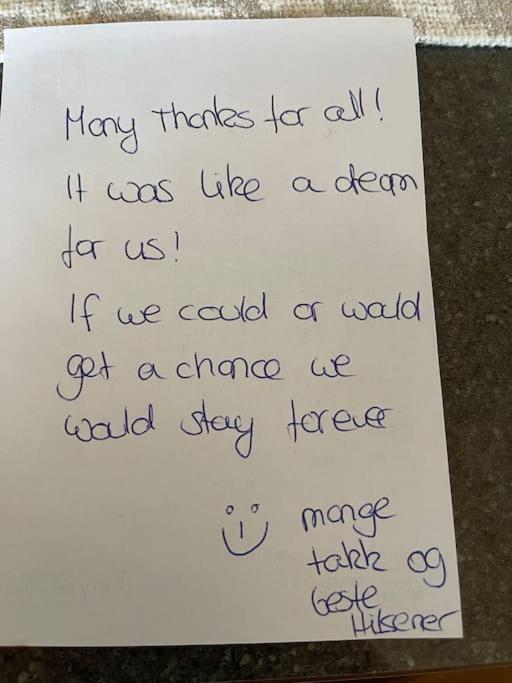 Many thanks for all!
It was like a deam
for us!
If we could or would
get a chance we
would stay forever
mange
takk og
beste
Hilsener